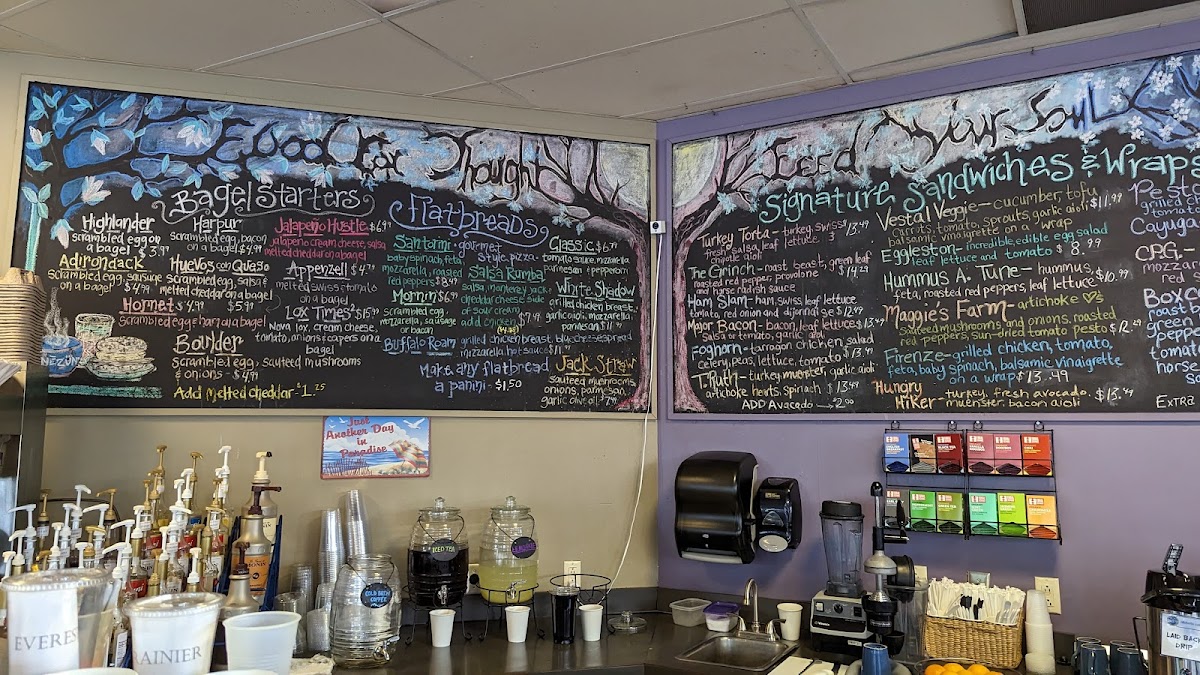 Food For Thought
Bagel Starters
Highlander
scrambled egg on
a bagel $3.99
Adirondack
scrambled egg, sausage
on a bagel $4.99
Hornet $4.99
scrambled egg & ham on a bagel
Bounder
scrambled egg, sauteed mushrooms
& onions $4.99
Add melted cheddar $1.25
Harpur
scrambled egg, bacon
on a bagel $4.99
Huevos con Queso
scrambled egg, salsa &
melted cheddar on a bagel
$5.99
Jalapeño Hustle $6.49
jalapeno cream cheese, salsa
melted cheddar on a bagel
Appenzell $4.79
melted swiss & tomato
on a bagel
Lox Times $15.99
Nova lox, cream cheese,
tomato, onions & capers on a
bagel
Flatbreads
Santorini
baby spinach, feta
mozzarella, roasted
red peppers $8.49
Mornin' $6.99
scrambled egg,
mozzarella, sausage
or bacon
Buffalo Roam
grilled chicken breast, blu cheese spread
mozarella, hot sauce $11.49
Make any flatbread
a panini - $1.50
gourmet
style pizza
Salsa Rumba
salsa, monterey jack &
cheddar cheese side
of sour cream
add chicken $7.49
Classic $6.79
tomato sauce, mozzarella,
parmesan & pepperoni
White Shadow
grilled chicken breast,
garlic aioli, mozzarella
parmesan $11.49
Jack Straw
sauteed mushrooms
onions, parmesan,
garlic olive oil
Feed Your Soul
Signature Sandwiches & Wraps
Turkey Torta - turkey, swiss $13.49
fresh salsa, leaf lettuce,
chipotle aioli
The Grinch - roast beast, green leaf
roasted red pepper, provolone $14.29
and horseradish sauce
Ham Slam - ham, swiss, leaf lettuce,
tomato, red onion and dijonnaise $12.49
Major Bacon - bacon, leaf lettuce $13.49
Salsa or tomato, garlic aioli
Foghorn - tarragon chicken salad
celery, peas, lettuce, tomato $13.49
T. Ruth - turkey, muenster, garlic aioli
artichoke hearts, spinach $13.49
ADD Avacado → $2.00
Vestal Veggie - cucumber, tofu
carrots, tomato, sprouts, garlic aioli $11.99
balsamic vinegarette on a wrap
Eggleston - incredible, edible egg salad
leaf lettuce and tomato $8.99
Hummus A. Tune - hummus,
feta, roasted red peppers, leaf lettuce $10.99
Maggie's Farm - artichoke
sauteed mushrooms and onions, roasted
red peppers, sun-dried tomato pesto $12.29
Firenze - grilled chicken, tomato,
feta, baby spinach, balsamic vinaigrette
on a wrap $13.49
Hungry
Hiker - turkey, fresh avocado,
muenster, bacon aioli $13.49
Pesto
grilled
tomato
Cayuga
CRG
mozzar
Box C
roast
green
peppe
tomato
horse
Extra
MEZUN
Just
Another Day
in
Paradise
ICED TEA
COLD BREW
COFFEE
EVERES
RAINIER
LAID BACK
DRIP